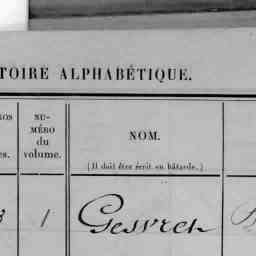 TOIRE ALPHABÉTIQUE.
NU-
MÉRO
du
volume.
NOM.
(Il doit être écrit en bâtarde.)
1
Gesvret